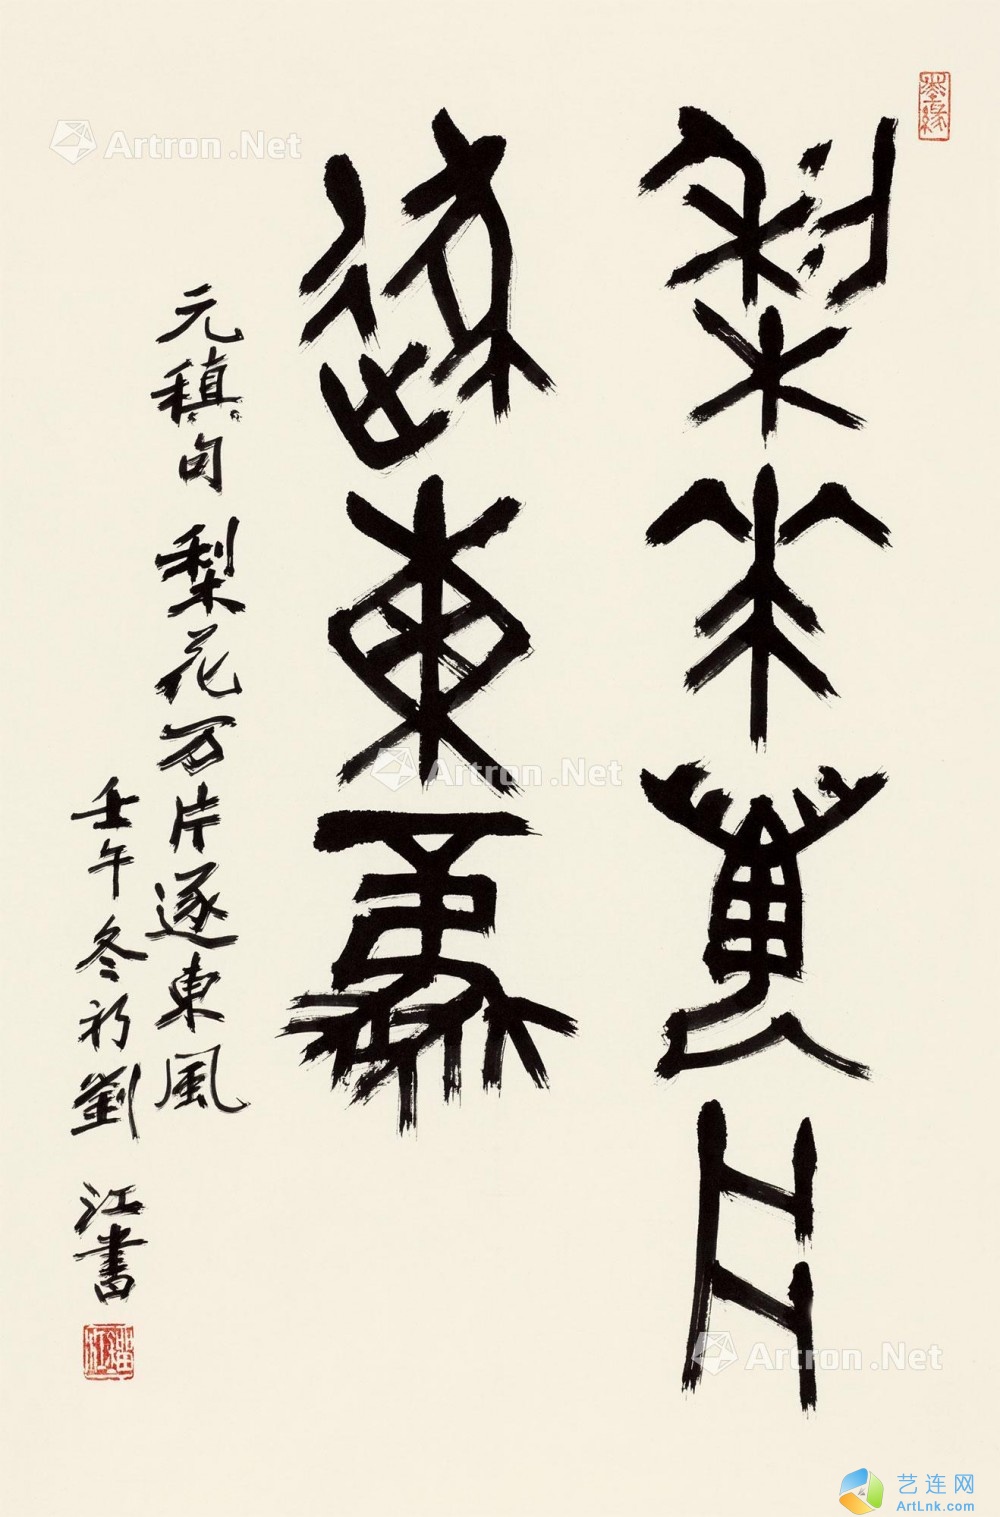 梨花萬片
逐東風
元稹句 梨花万片逐東風
壬午冬初劉江書
劉江
Artron.Net
Artron.Net
Artron.Net
艺连网
ArtLnk.com